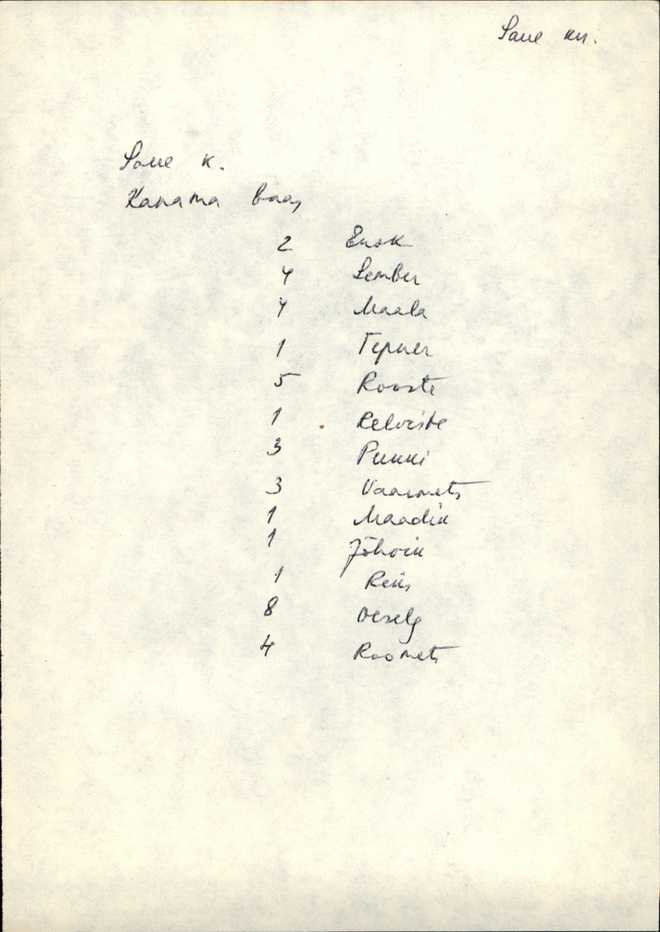 Saue kn.
Saue k.
Kanama
2 Ensk
4 Lember
4 Maala
1 Tepner
5 Rooste
1
3 Punni
3 Vaarmets
1 Maadik
1 Jõhvik
1 Reiu
8 Oeselg
4 Roomets